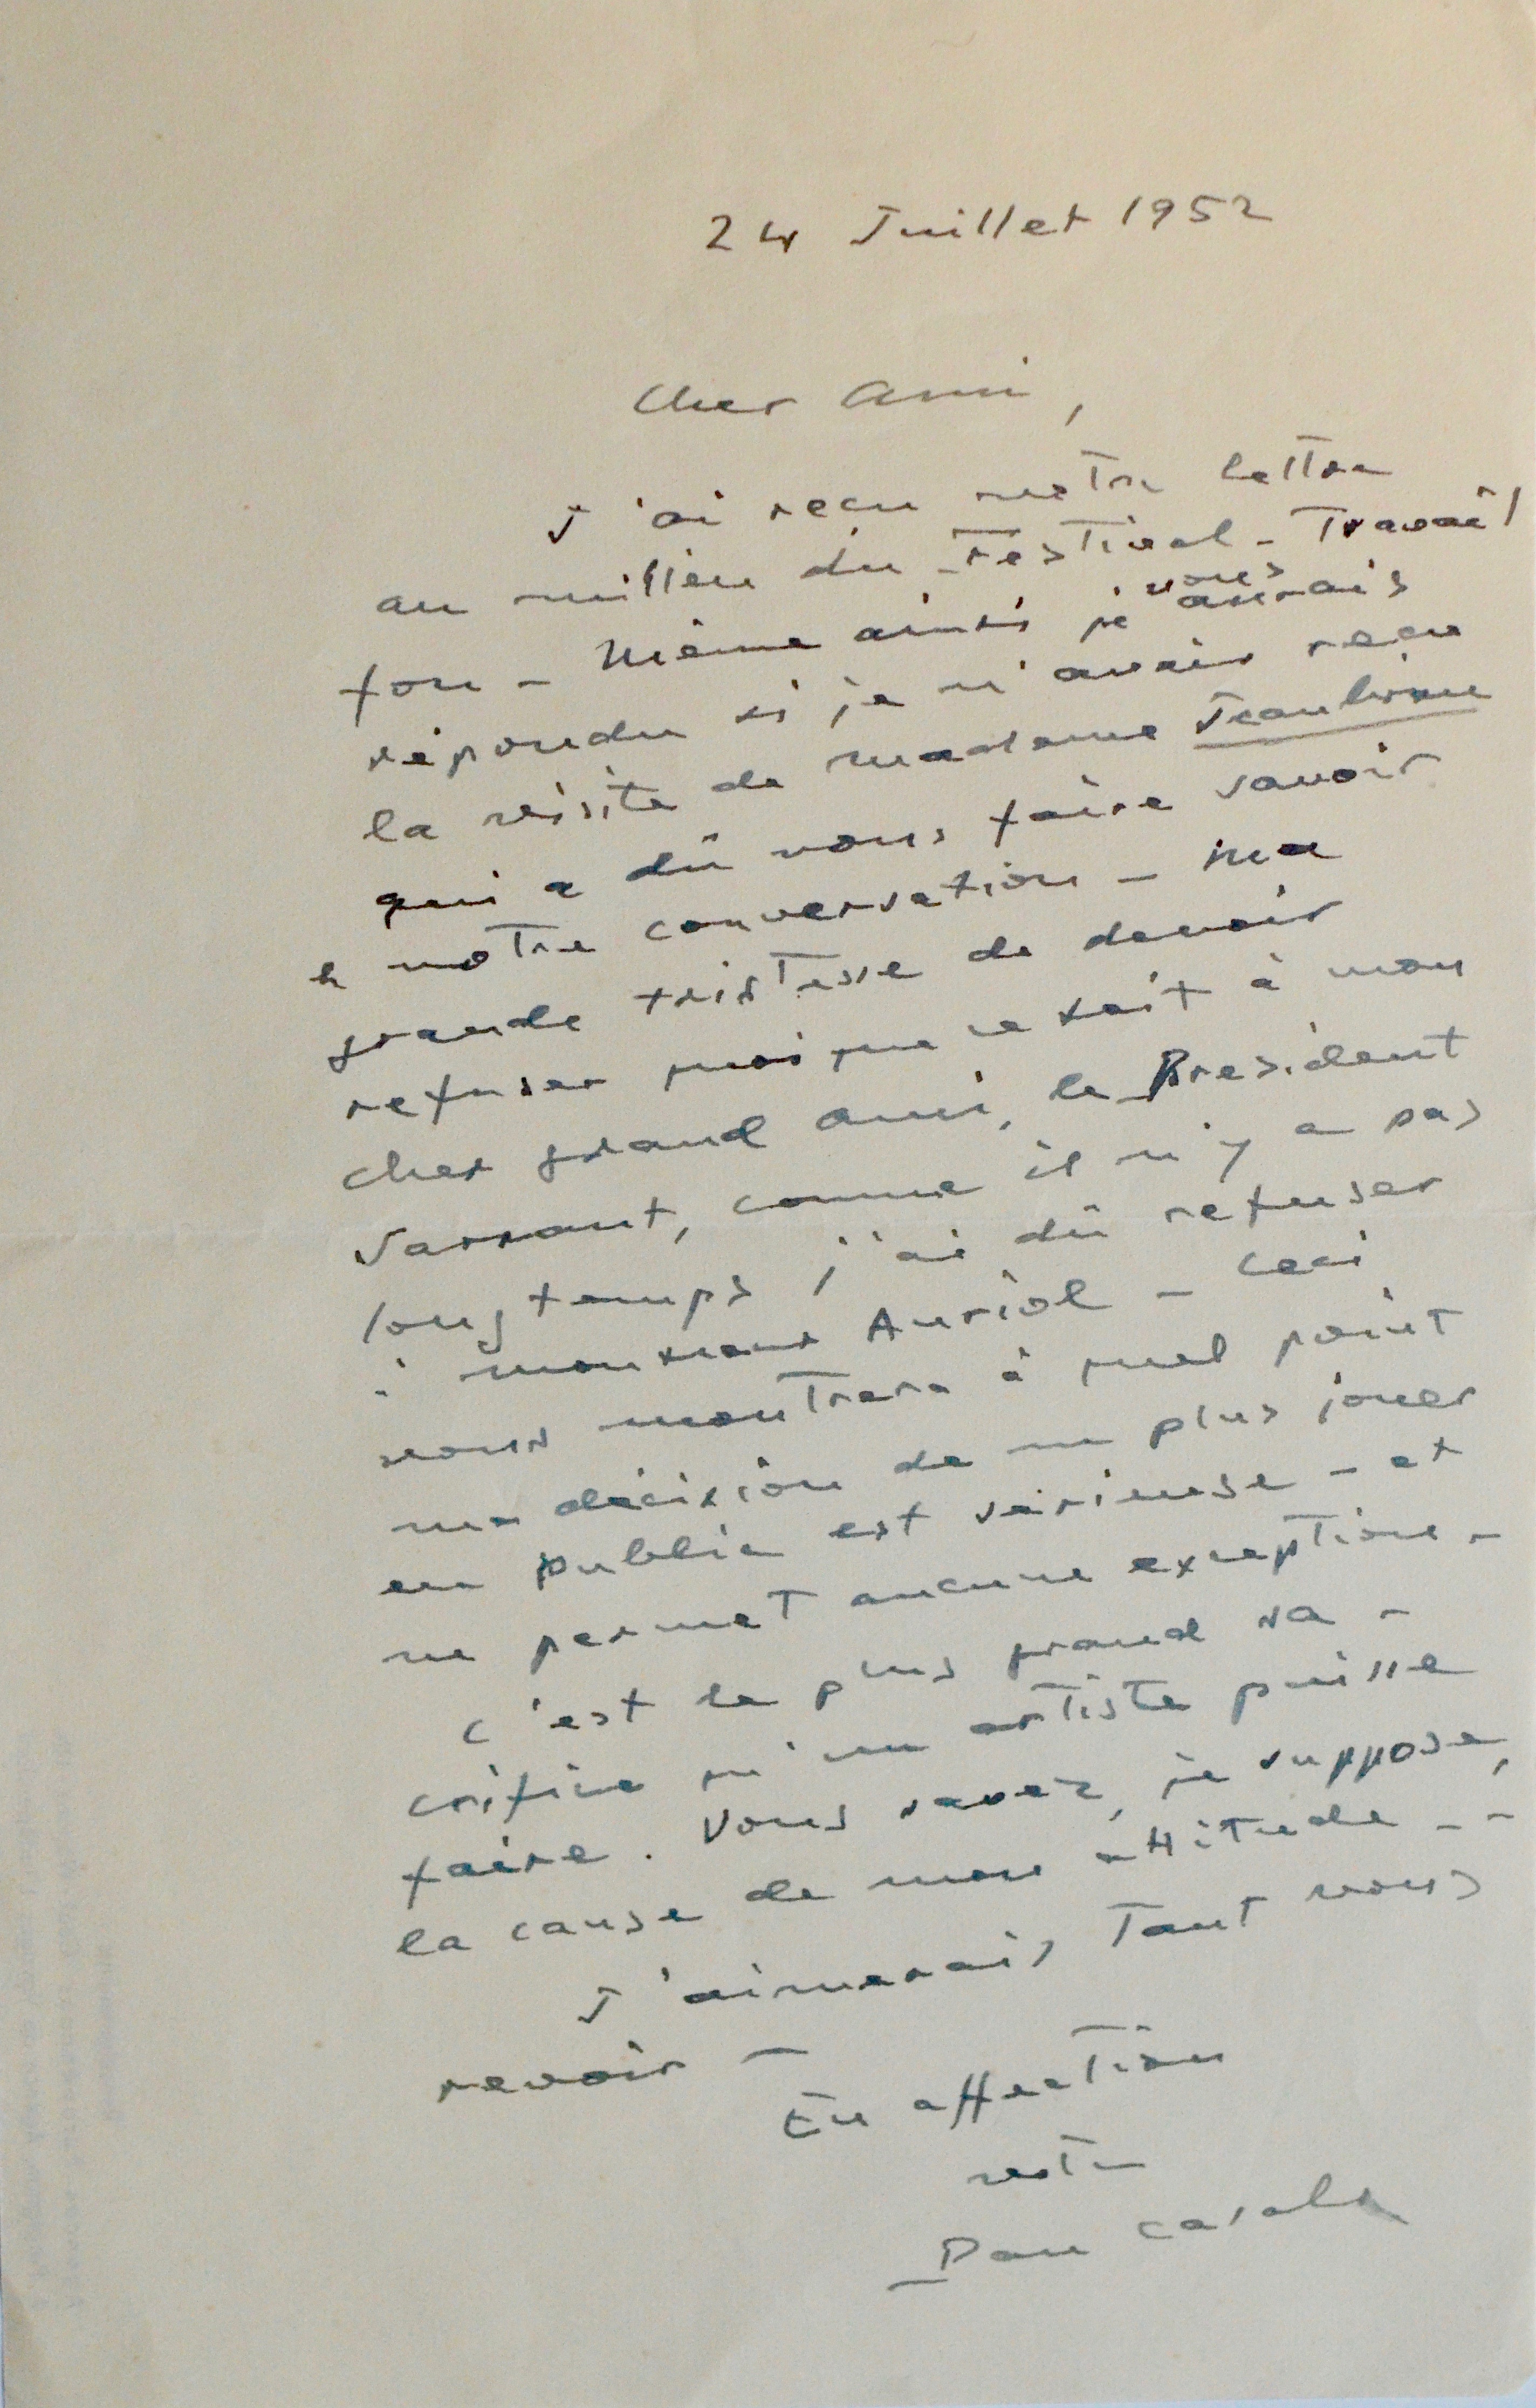 24 Juillet 1952
Cher Ami,
J'ai reçu votre lettre
au milieu du Festival - Travail
fou - Même ainsi je vous aurais
répondu si je n'avais reçu
la visite de madame
qui a dû vous faire savoir
notre conversation - Ma
grande tristesse de devoir
refuser quoique ce soit à mon
cher grand ami, le President
Sarraut, comme il n'y a pas
longtemps j'ai dû refuser
à monsieur Auriol - Ceci
vous montrera à quel point
ma décision de ne plus jouer
en public est sérieuse - et
ne permet aucune exception -
C'est le plus grand sa-
crifice qu'un artiste puisse
faire. Vous savez, je suppose,
la cause de mon attitude - -
J'aimerais tant vous
revoir -
En affection
votre
Pau Casals